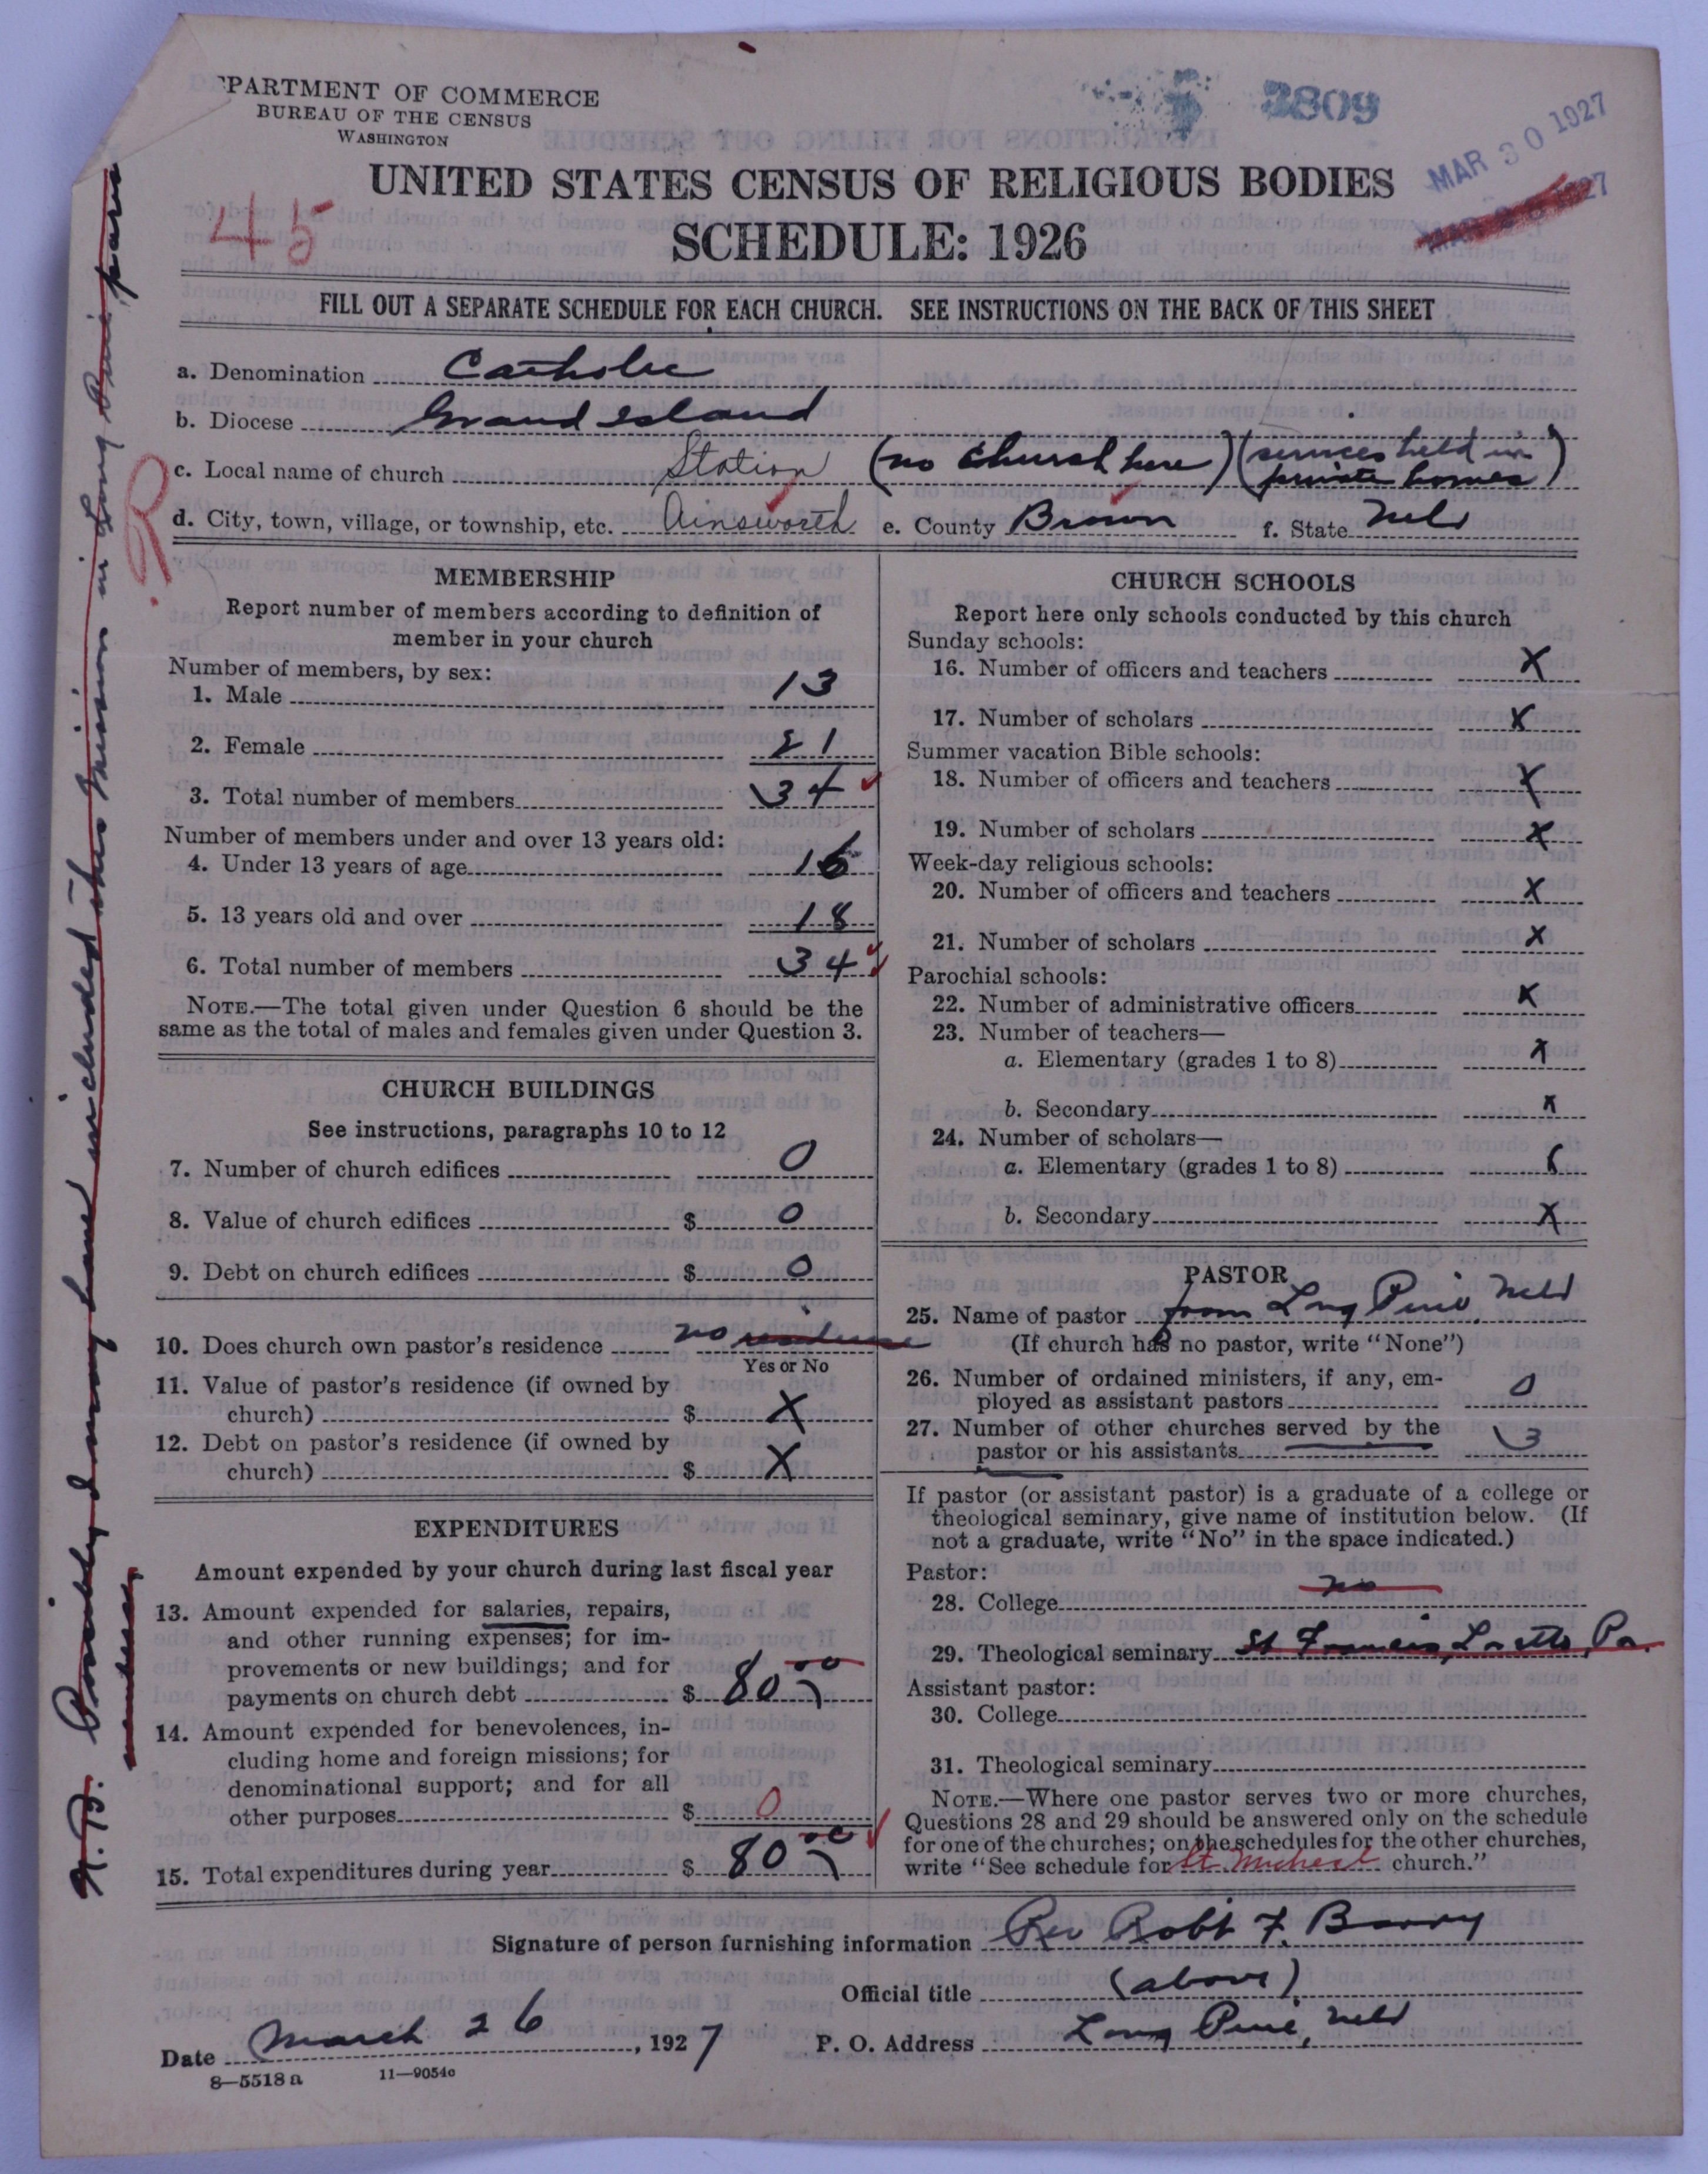 DEPARTMENT OF COMMERCE
BUREAU OF THE CENSUS
WASHINGTON
3809
MAR 30 1927
UNITED STATES CENSUS OF RELIGIOUS BODIES
45
SCHEDULE: 1926
FILL OUT A SEPARATE SCHEDULE FOR EACH CHURCH. SEE INSTRUCTIONS ON THE BACK OF THIS SHEET
a. Denomination Catholic
b. Diocese Grand Island
c. Local name of church Station (no church here) (services held in private homes)
R
d. City, town, village, or township, etc. Ainsworth e. County Brown f. State Nebr
MEMBERSHIP
Report number of members according to definition of
member in your church
Number of members, by sex:
1. Male 13
2. Female 21
3. Total number of members 34
Number of members under and over 13 years old:
4. Under 13 years of age 16
5. 13 years old and over 18
6. Total number of members 34
NOTE.—The total given under Question 6 should be the
same as the total of males and females given under Question 3.
CHURCH BUILDINGS
See instructions, paragraphs 10 to 12
7. Number of church edifices 0
8. Value of church edifices $ 0
9. Debt on church edifices $ 0
10. Does church own pastor's residence no residence
Yes or No
11. Value of pastor's residence (if owned by
church) $ X
12. Debt on pastor's residence (if owned by
church) $ X
EXPENDITURES
Amount expended by your church during last fiscal year
13. Amount expended for salaries, repairs,
and other running expenses; for im-
provements or new buildings; and for
payments on church debt $ 80 00
14. Amount expended for benevolences, in-
cluding home and foreign missions; for
denominational support; and for all
other purposes $ 0
15. Total expenditures during year $ 80 00
CHURCH SCHOOLS
Report here only schools conducted by this church
Sunday schools:
16. Number of officers and teachers X
17. Number of scholars X
Summer vacation Bible schools:
18. Number of officers and teachers X
19. Number of scholars X
Week-day religious schools:
20. Number of officers and teachers X
21. Number of scholars X
Parochial schools:
22. Number of administrative officers X
23. Number of teachers—
a. Elementary (grades 1 to 8) X
b. Secondary X
24. Number of scholars—
a. Elementary (grades 1 to 8)
b. Secondary X
PASTOR
25. Name of pastor from Long Pine, Nebr
(If church has no pastor, write "None")
26. Number of ordained ministers, if any, em-
ployed as assistant pastors 0
27. Number of other churches served by the
pastor or his assistants 3
If pastor (or assistant pastor) is a graduate of a college or
theological seminary, give name of institution below. (If
not a graduate, write "No" in the space indicated.)
Pastor:
28. College no
29. Theological seminary St Francis, Loretto, Pa.
Assistant pastor:
30. College
31. Theological seminary
NOTE.—Where one pastor serves two or more churches,
Questions 28 and 29 should be answered only on the schedule
for one of the churches; on the schedules for the other churches,
write "See schedule for St Micheal church."
Signature of person furnishing information Rev Robt F. Barry
Official title (above)
Date March 26, 1927 P. O. Address Long Pine, Nebr
8—5518 a 11—9054c
N.B. Possibly I may have included this mission in Long Pine parish
members